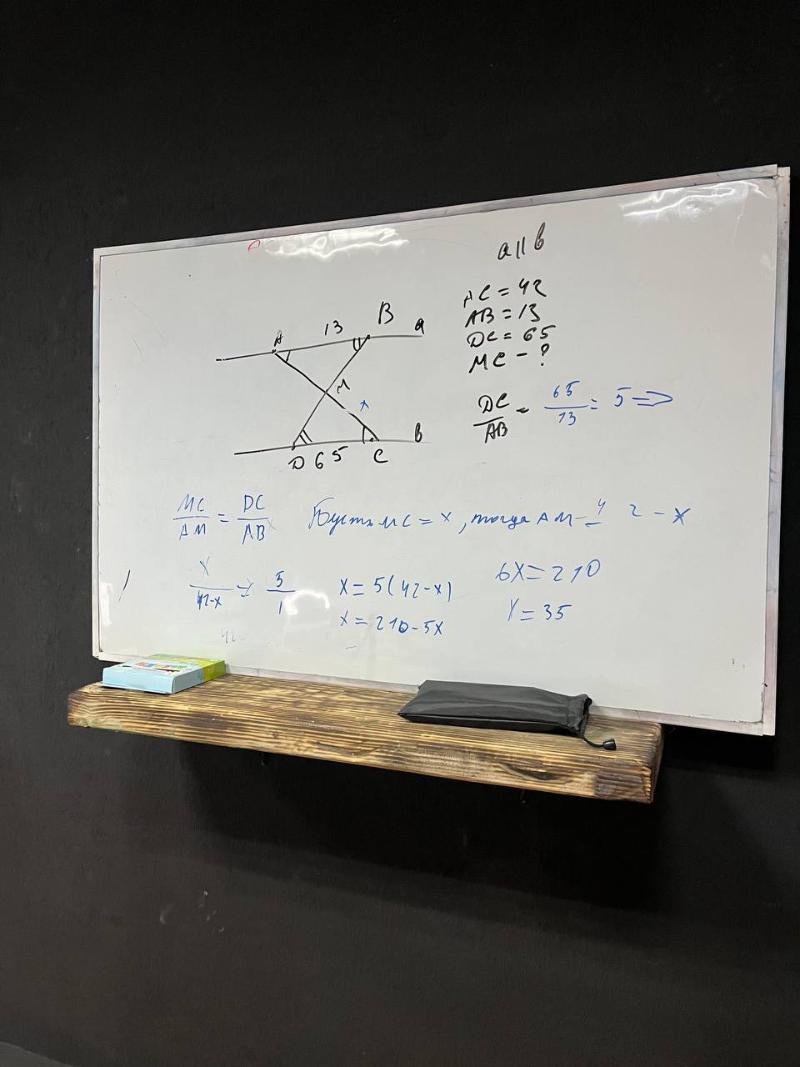 a || b
AC = 42
AB = 13
DC = 65
MC - ?
A 13 B a
M
x
D 65 C b
DC/AB = 65/13 = 5 =>
MC/AM = DC/AB Пусть MC = x, тогда AM = 42 - x
x/42-x = 5/1
x = 5(42-x)
x = 210-5x
6x = 210
x = 35